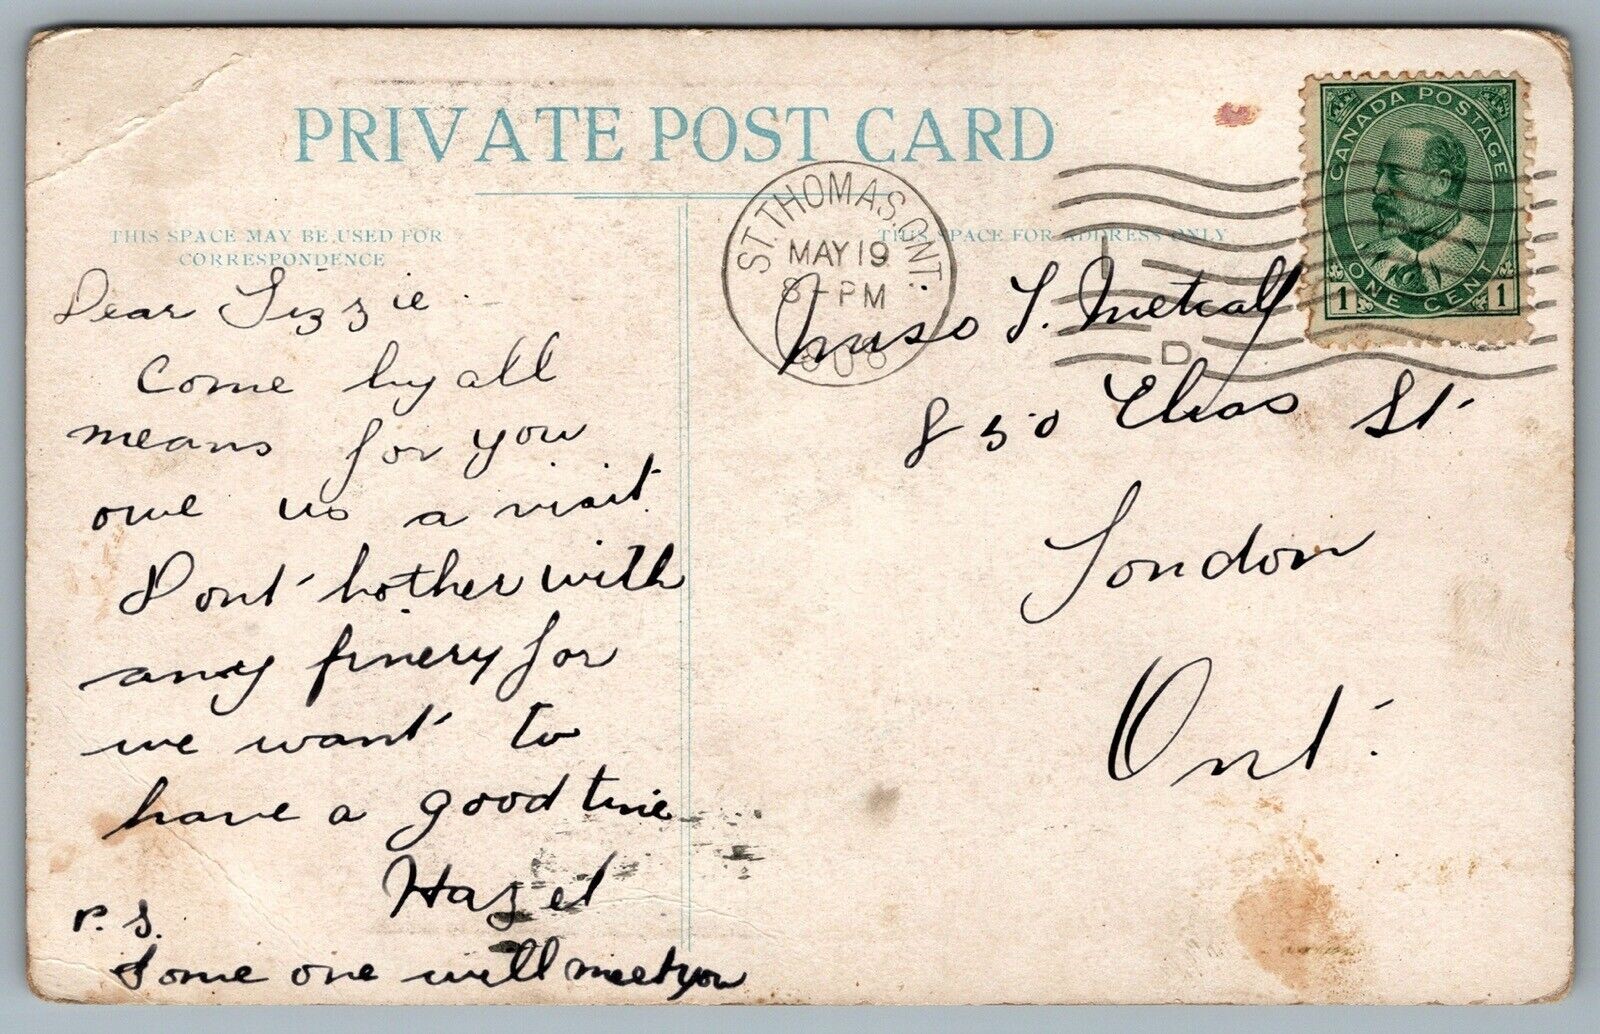 PRIVATE POST CARD
THIS SPACE MAY BE USED FOR
CORRESPONDENCE
THIS SPACE FOR ADDRESS ONLY
ST. THOMAS. ONT.
MAY 19
8 - PM
1908
D
CANADA POSTAGE
1 ONE CENT 1
Dear Lizzie.
Come by all
means for you
owe us a visit.
Dont bother with
any finery for
we want to
have a good time
Hazel
P. S.
Some one will meet you
Miss L. Metcalf
850 Elias St
London
Ont.